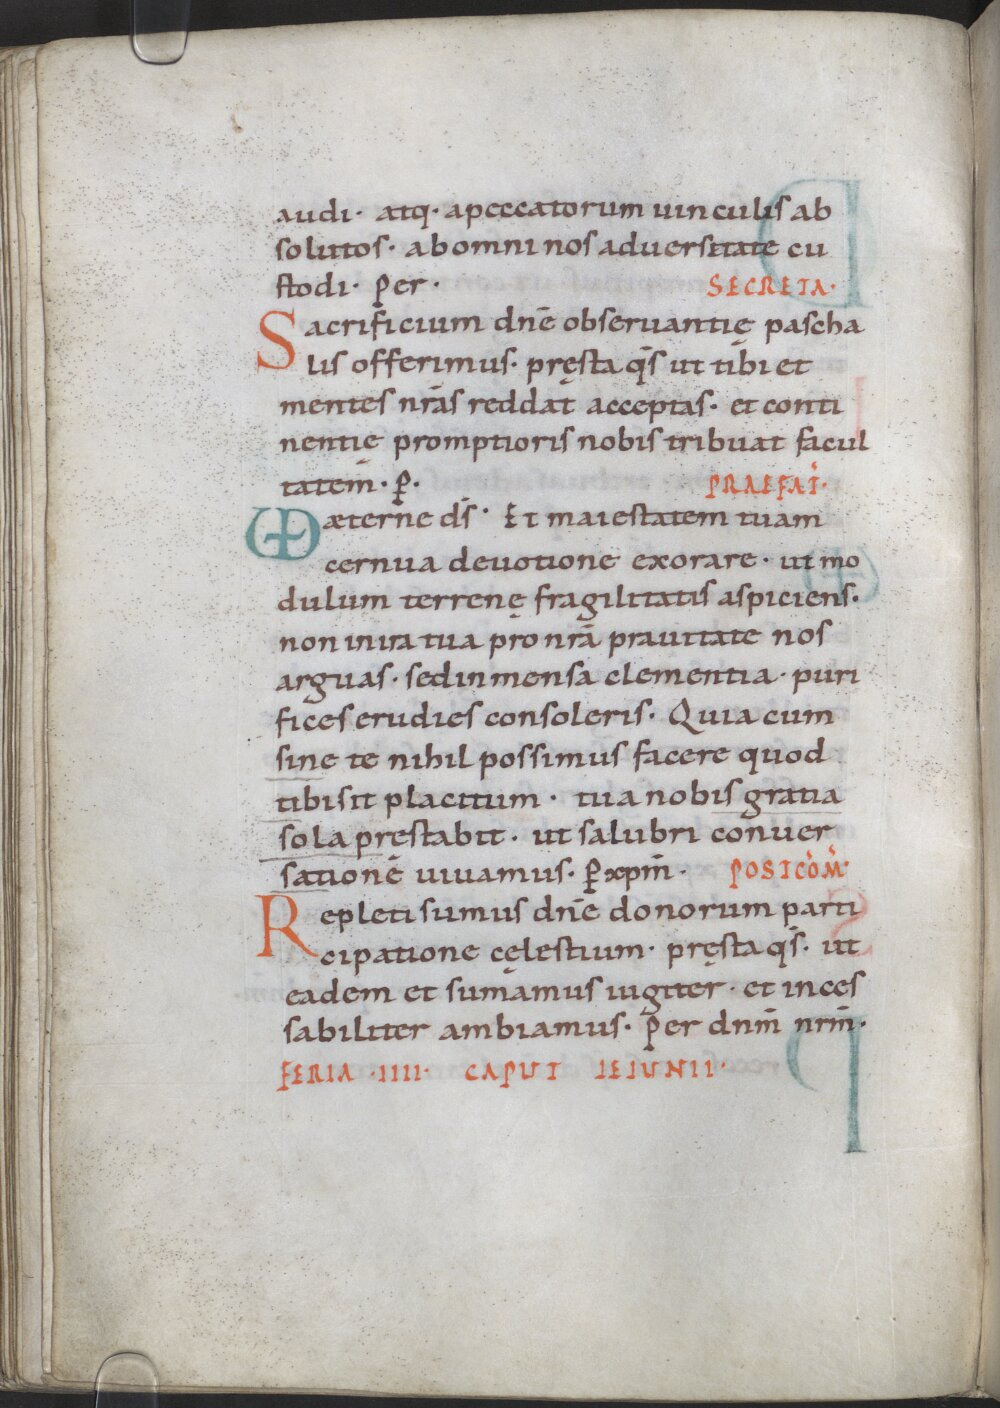 audi· atq· apeccatorum uinculis ab
solutos· ab omni nos aduersitate cu
stodi· Per·
SECRETA·
Sacrificium dn̄e obseruantię pascha
lis offerimus· pręsta q̄s ut tibi et
mentes nr̄as reddat acceptas· et conti
nentię promptioris nobis tribuat facul
tatem· P̄·
PRAEFAT̄·
VD æterne ds̄· Et maiestatem tuam
cernua deuotione exorare· ut mo
dulum terrenę fragilitatis aspiciens·
non in ira tua pro nr̄a prauitate nos
arguas· sed inmensa clementia· puri
fices erudies consoleris· Quia cum
sine te nihil possimus facere quod
tibi sit placitum· tua nobis gratia
sola pręstabit· ut salubri conuer
satione uiuamus· P̄ xp̄m·
POSTCŌM̄·
Repleti sumus dn̄e donorum parti
cipatione cęlestium· pręsta q̄s· ut
eadem et sumamus iugiter· et inces
sabiliter ambiamus· Per dn̄m nr̄m·
FERIA ·IIII· CAPUT IEIUNII·